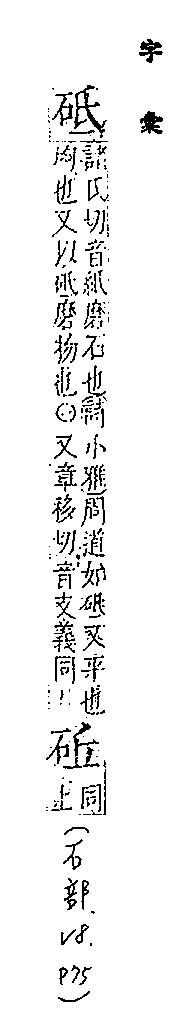 字彙
砥
諸氏切音紙磨石也詩小雅周道如砥又平也
均也又以砥磨物也〇又章移切音支義同上
砋
同上
(石部.
V8.
P75)